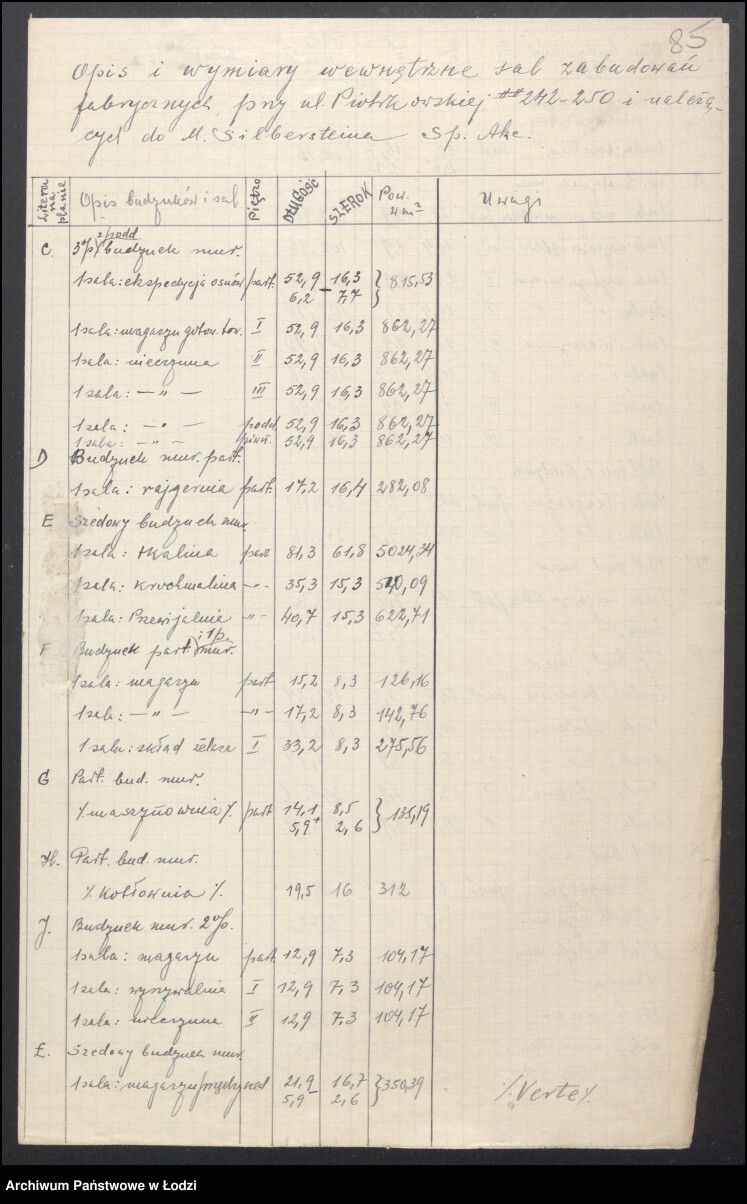 85
Opis i wymiary wewnętrzne sal zabudowań
fabrycznych przy ul. Piotrkowskiej ## 242-250 i należą-
cych do M. Silbersteina Sp. Akc.
Litera na planie Opis budynków i sal Piętro DŁUGOŚĆ SZEROK Pow. w m² Uwagi
C. 3 p. z podd budynek mur.
1 sala: ekspedycja osnów part. 52,9 – 16,3 } 815,53
6,2 7,7
1 sala: magazyn gotow. tow. I 52,9 16,3 862,27
1 sala: nieczynna II 52,9 16,3 862,27
1 sala: — " — III 52,9 16,3 862,27
1 sala: — " — podd. 52,9 16,3 862,27
1 sala: — " — piwn. 52,9 16,3 862,27
D Budynek mur. part.
1 sala: rajgernia part. 17,2 16,4 282,08
E Szedowy budynek mur.
1 sala: tkalnia part 81,3 61,8 5024,34
1 sala: krochmalnia -"- 35,3 15,3 540,09
1 sala: Przewijalnia "- 40,7 15,3 622,71
F Budynek part. i 1 p. mur.
1 sala: magazyn part 15,2 8,3 126,16
1 sala: — " — -"- 17,2 8,3 142,76
1 sala: skład żelaza I 33,2 8,3 275,56
G Part. bud. mur.
/. maszynownia /. part 14,1 + 8,5 } 135,19
5,9 2,6
H. Part. bud. mur.
/. Kotłownia /. 19,5 16 312
J. Budynek mur. 2 p.
1 sala: magazyn part. 12,9 7,3 104,17
1 sala: wyszywalnia I 12,9 7,3 104,17
1 sala: nieczynna II 12,9 7,3 104,17
Ł. Szedowy budynek mur.
1 sala: magazyn przędzy 21,9 – 16,7 } 350,39
5,9 2,6
/. Verte /.
Archiwum Państwowe w Łodzi